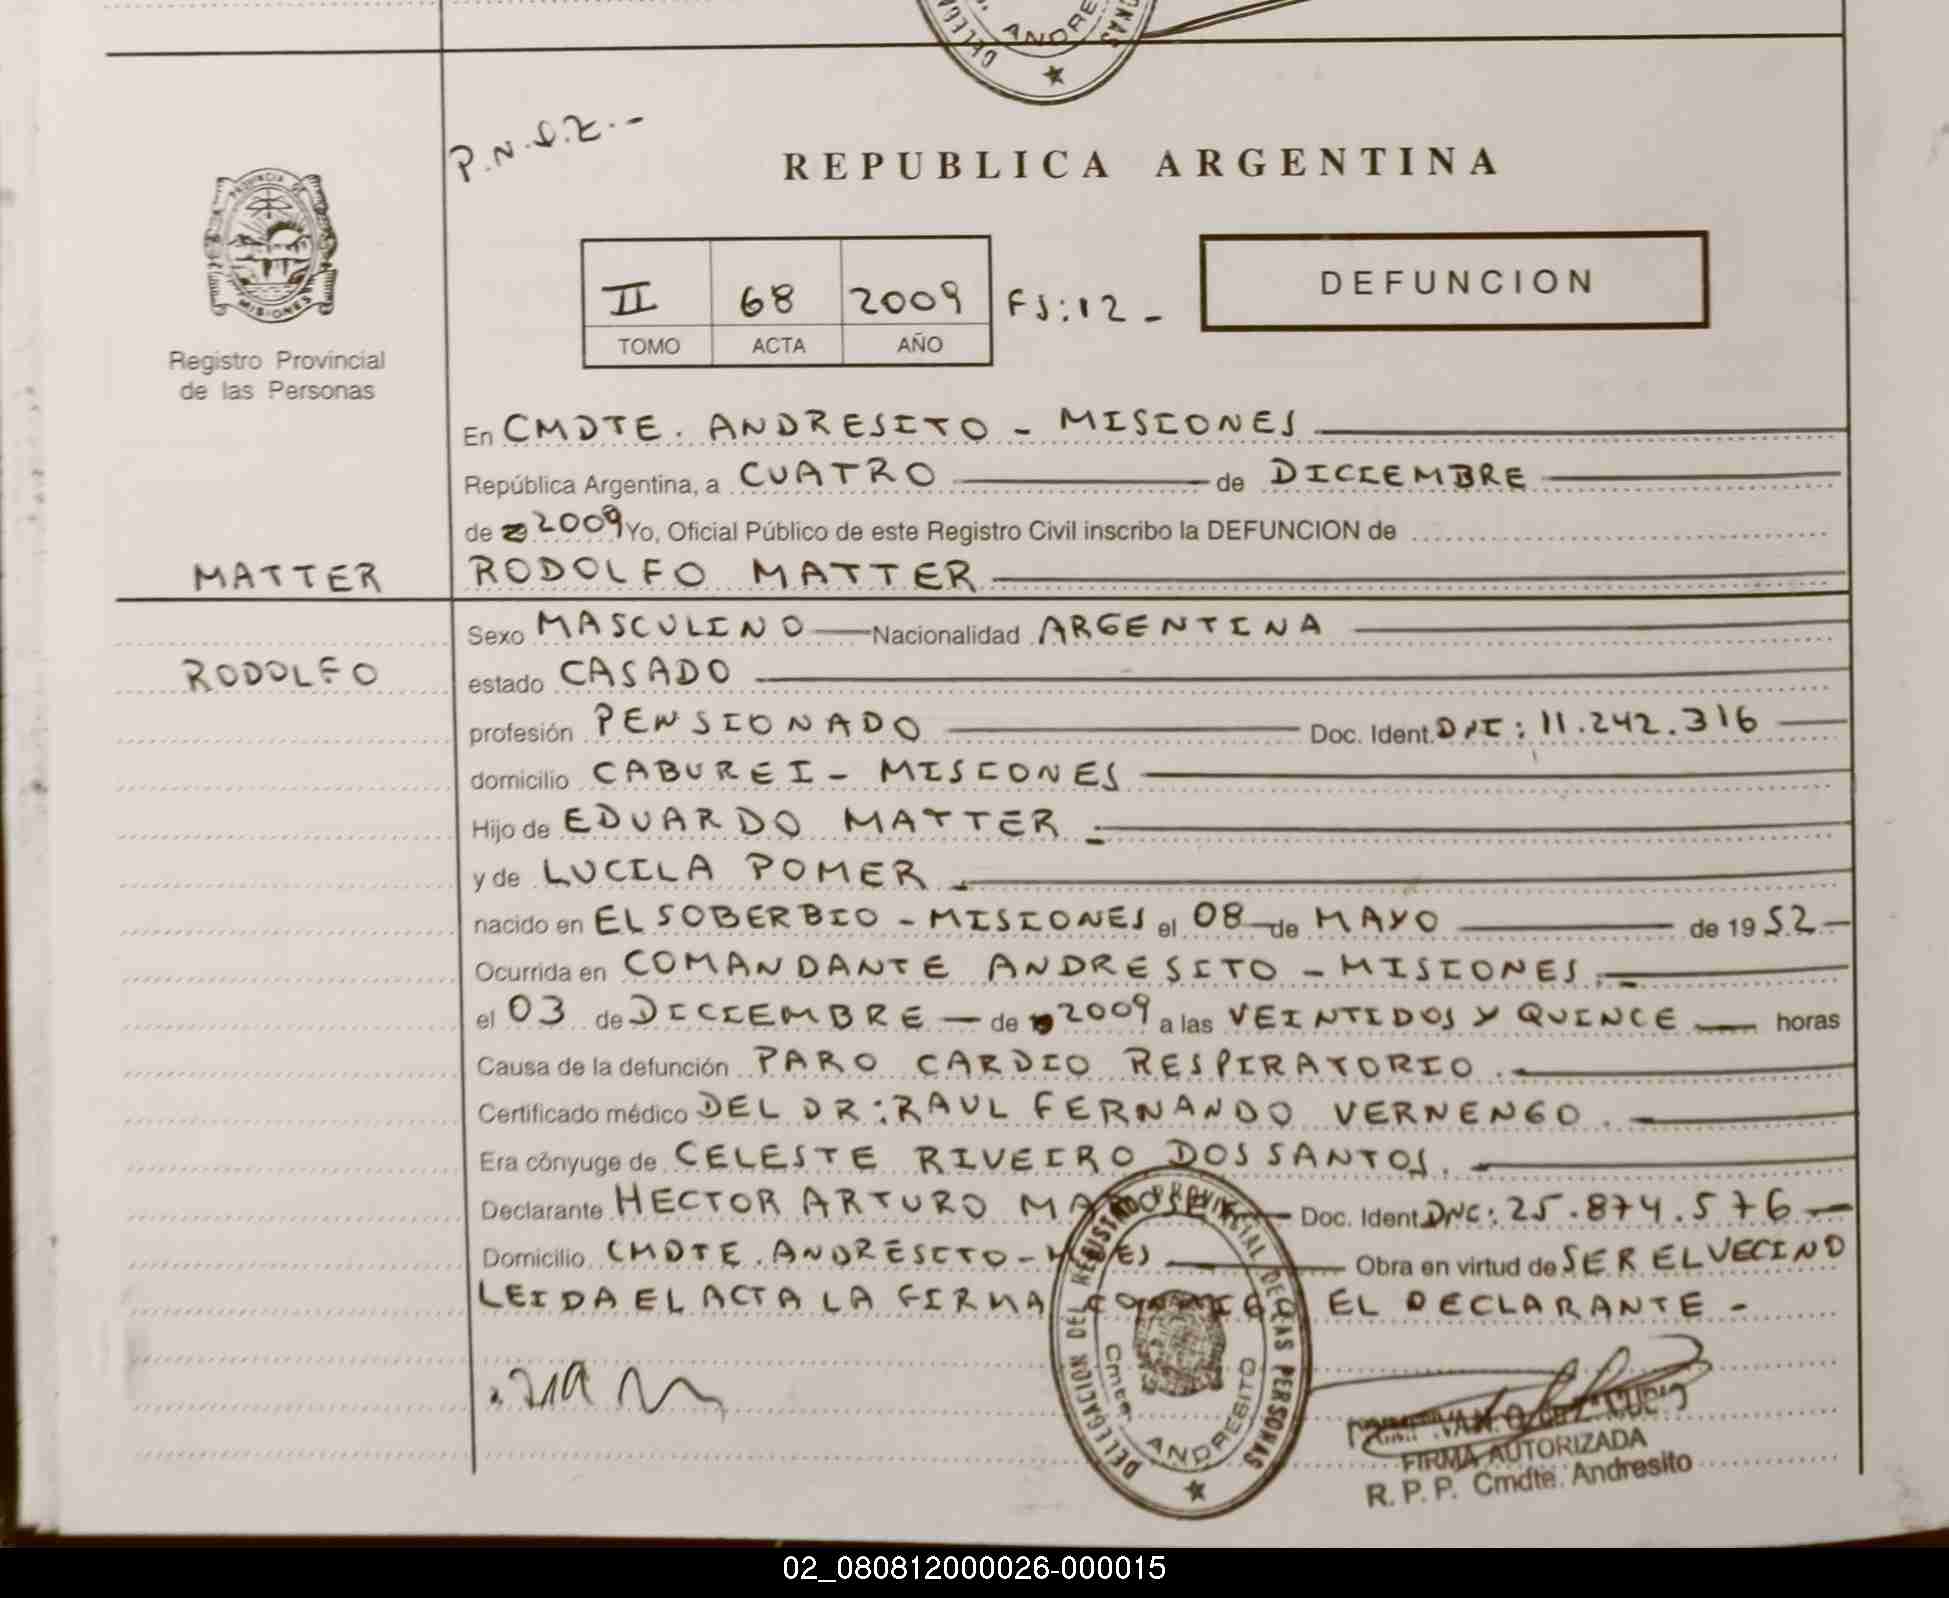 ANDRE
P.N.S.Z.-
REPUBLICA ARGENTINA
PROVINCIA DE
MISIONES
Registro Provincial
de las Personas
II 68 2009 FS:12-
TOMO ACTA AÑO
DEFUNCION
En CMDTE. ANDRESITO - MISIONES
República Argentina, a CUATRO de DICIEMBRE
de 2009 Yo, Oficial Público de este Registro Civil inscribo la DEFUNCION de
MATTER RODOLFO MATTER
Sexo MASCULINO Nacionalidad ARGENTINA
RODOLFO estado CASADO
profesión PENSIONADO Doc. Ident. DNI: 11.242.316
domicilio CABUREI - MISIONES
Hijo de EDUARDO MATTER
y de LUCILA POMER
nacido en EL SOBERBIO - MISIONES el 08 de MAYO de 1952
Ocurrida en COMANDANTE ANDRESITO - MISIONES
el 03 de DICIEMBRE de 2009 a las VEINTIDOS Y QUINCE horas
Causa de la defunción PARO CARDIO RESPIRATORIO
Certificado médico DEL DR: RAUL FERNANDO VERNENGO
Era cónyuge de CELESTE RIVEIRO DOS SANTOS
Declarante HECTOR ARTURO Doc. Ident. DNI: 25.874.576
Domicilio CMDTE. ANDRESITO - Obra en virtud de SER EL VECINO
LEIDA EL ACTA LA FIRMA CONMIGO EL DECLARANTE -
DELEGACION DEL REGISTRO PROVINCIAL DE LAS PERSONAS
Cmdte. ANDRESITO
FIRMA AUTORIZADA
R. P. P. Cmdte. Andresito
02_080812000026-000015